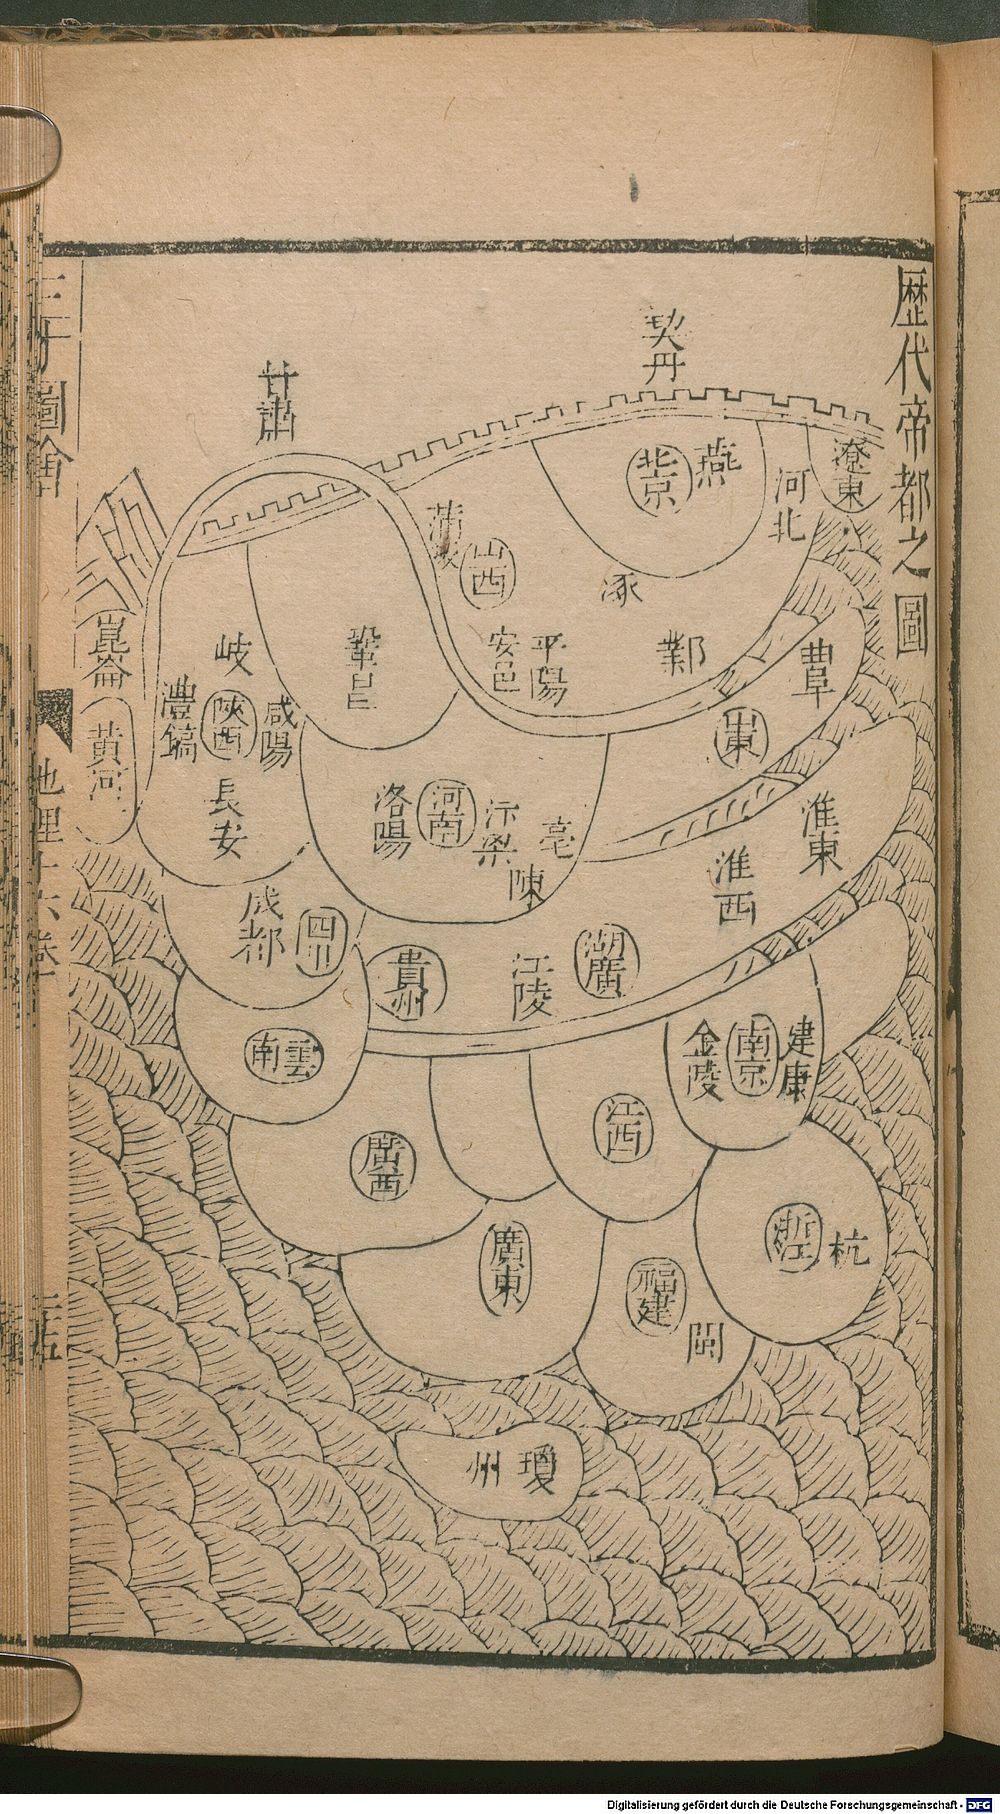 歷代帝都之圖
契丹
遼東
燕
北京
河北
涿
鄴
曲阜
山東
淮東
淮西
甘肅
蒲
山西
平陽
安邑
鞏昌
岐
陝西
咸陽
灃鎬
長安
崑崙
黃河
洛陽
河南
汴梁
亳
陳
成都
四川
貴州
江陵
湖廣
雲南
建康
南京
金陵
江西
廣西
廣東
浙江
杭
福建
閩
瓊州
三才圖會
地理十六卷
Digitalisierung gefördert durch die Deutsche Forschungsgemeinschaft - DFG